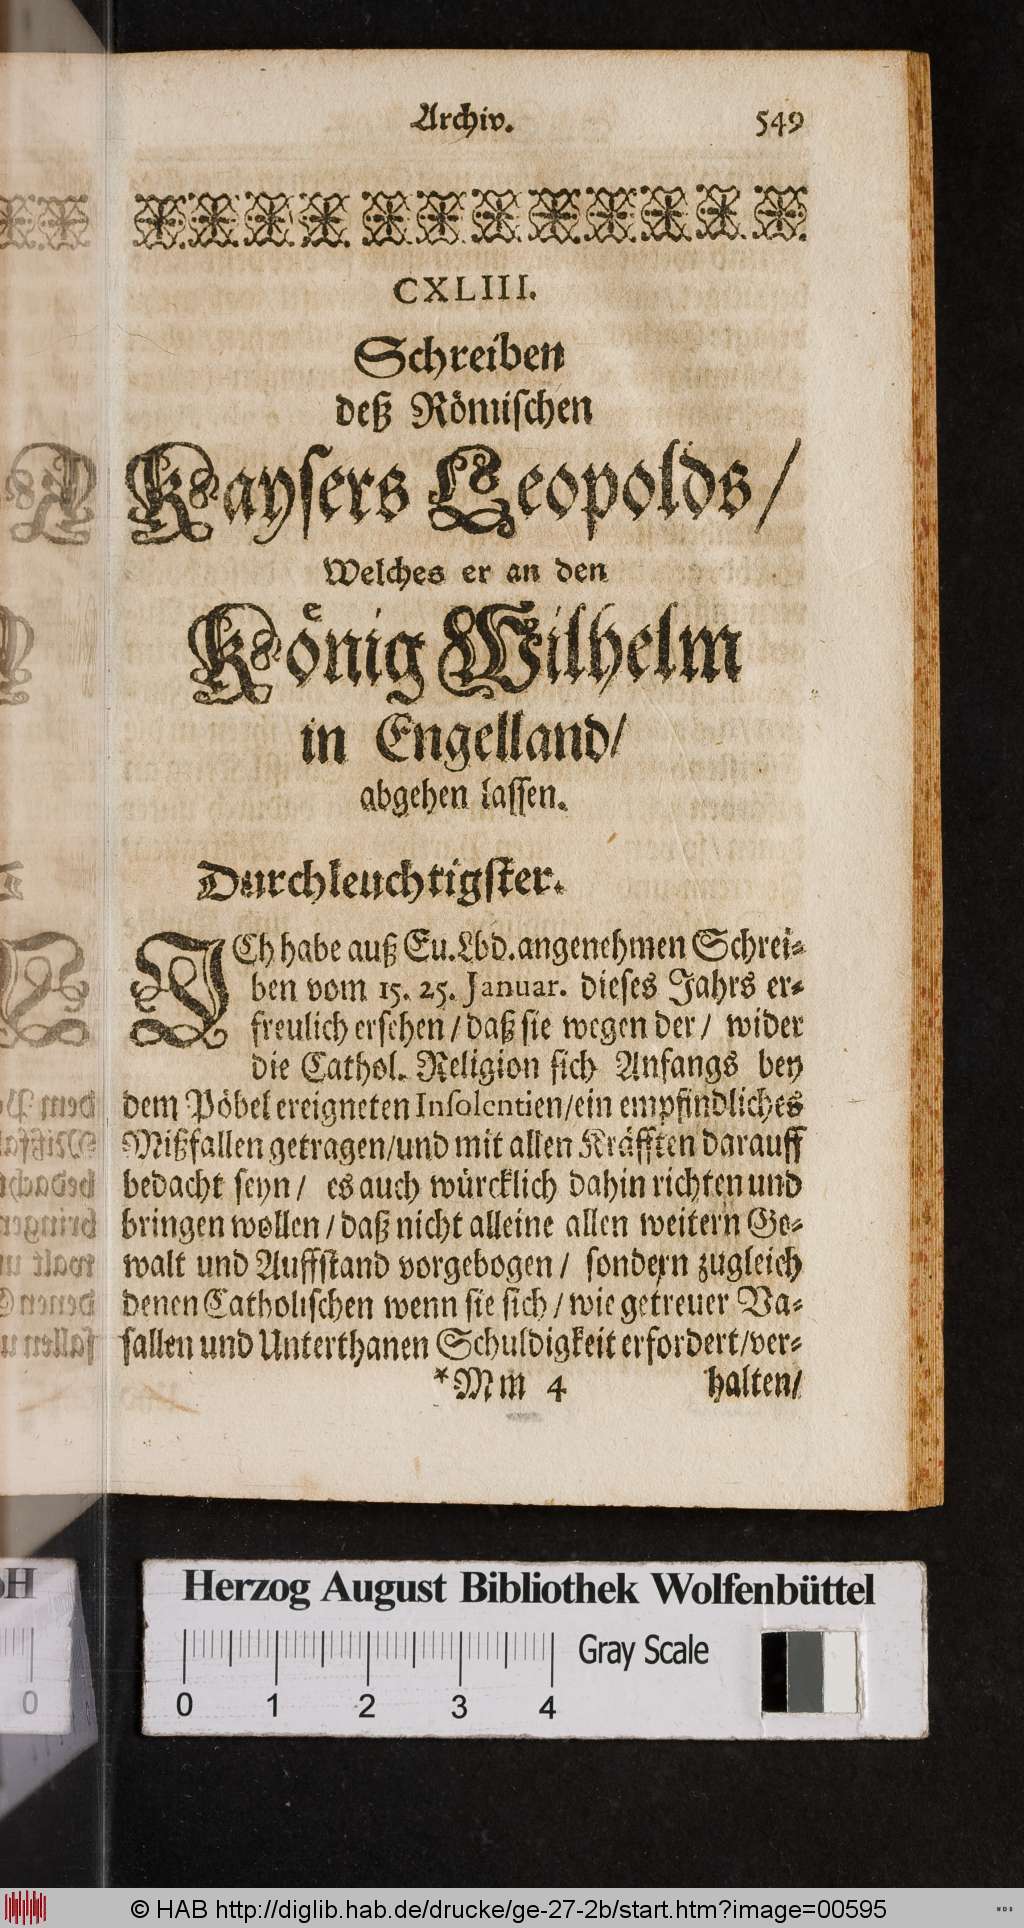 Archiv. 549
CXLIII.
Schreiben
deß Römischen
Kaysers Leopolds/
Welches er an den
König Wilhelm
in Engelland/
abgehen lassen.
Durchleuchtigster.
ICh habe auß Eu. Lbd. angenehmen Schrei-
ben vom 15. 25. Januar. dieses Jahrs er-
freulich ersehen/ daß sie wegen der/ wider
die Cathol. Religion sich Anfangs bey
dem Pöbel ereigneten Insolentien/ein empfindliches
Mißfallen getragen/und mit allen Kräfften darauff
bedacht seyn/ es auch würcklich dahin richten und
bringen wollen/ daß nicht alleine allen weitern Ge-
walt und Auffstand vorgebogen/ sondern zugleich
denen Catholischen wenn sie sich/ wie getreuer Va-
sallen und Unterthanen Schuldigkeit erfordert/ver-
*Mm 4 halten/
Herzog August Bibliothek Wolfenbüttel
Gray Scale
0 1 2 3 4
© HAB http://diglib.hab.de/drucke/ge-27-2b/start.htm?image=00595